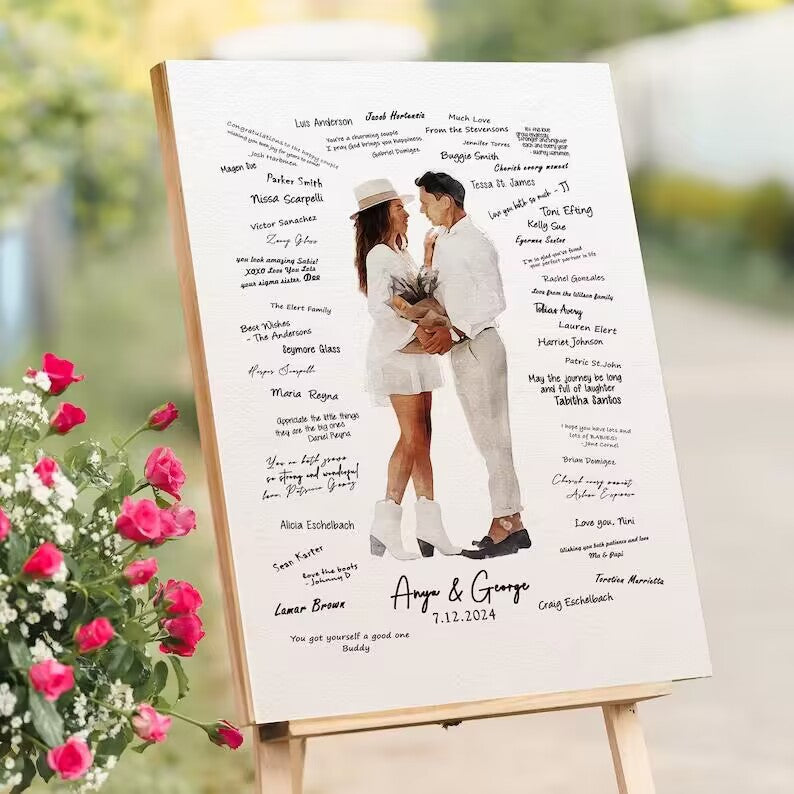 Luis Anderson
Jacob Hortensia
Much Love
From the Stevensons
Congratulations to the happy couple
wishing you both joy for years to come!
Josh Hartmen
You're a charming couple
I pray God brings you happiness
Gabriel Domigez
Jennifer Torres
Buggie Smith
it's the love
grow endlessly
stronger and tougher
each and every year
Magen Sue
Cherish every moment
Parker Smith
Tessa St. James
Nissa Scarpelli
Love you both so much - JJ
Toni Efting
Victor Sanachez
Kelly Sue
Zooey Glass
Eyerman Santos
you look amazing Sabie!
XOXO Love You Lots
your sigma sister, Dee
I'm so glad you've found
your perfect partner in life
Rachel Gonzales
Love from the Wilson family
The Elert Family
Tobias Avery
Best Wishes
- The Andersons
Lauren Elert
Seymore Glass
Harriet Johnson
Patric St.John
Maria Reyna
May the journey be long
and full of laughter
Tabitha Santos
Appreciate the little things
they are the big ones
Daniel Reyna
I hope you have lots and
lots of BABIES!
-Jane Cornel
You're both
so strong and wonderful
love, Patricia Gomez
Brian Domigez
Cherish every moment
Alicia Eschelbach
Love you, Nini
Sean Karter
Wishing you both patience and love
Ma & Papi
love the boots
- Johnny D
Torstien Marrietta
Lamar Brown
Craig Eschelbach
Anya & George
7.12.2024
You got yourself a good one
Buddy